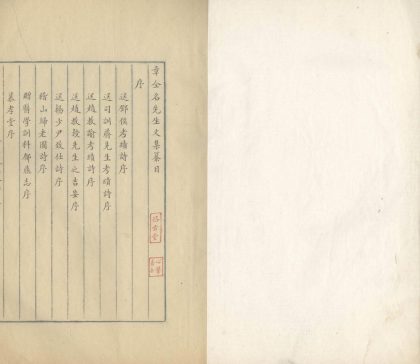 章金名先生文集篡目
序
送鄧侯考績詩序
送司訓蔣先生考績詩序
送趙教諭考績詩序
送趙教授先生之吉安序
送楊少尹致仕詩序
稽山歸老圖詩序
贈醫學訓科鄒應志序
慕考堂序